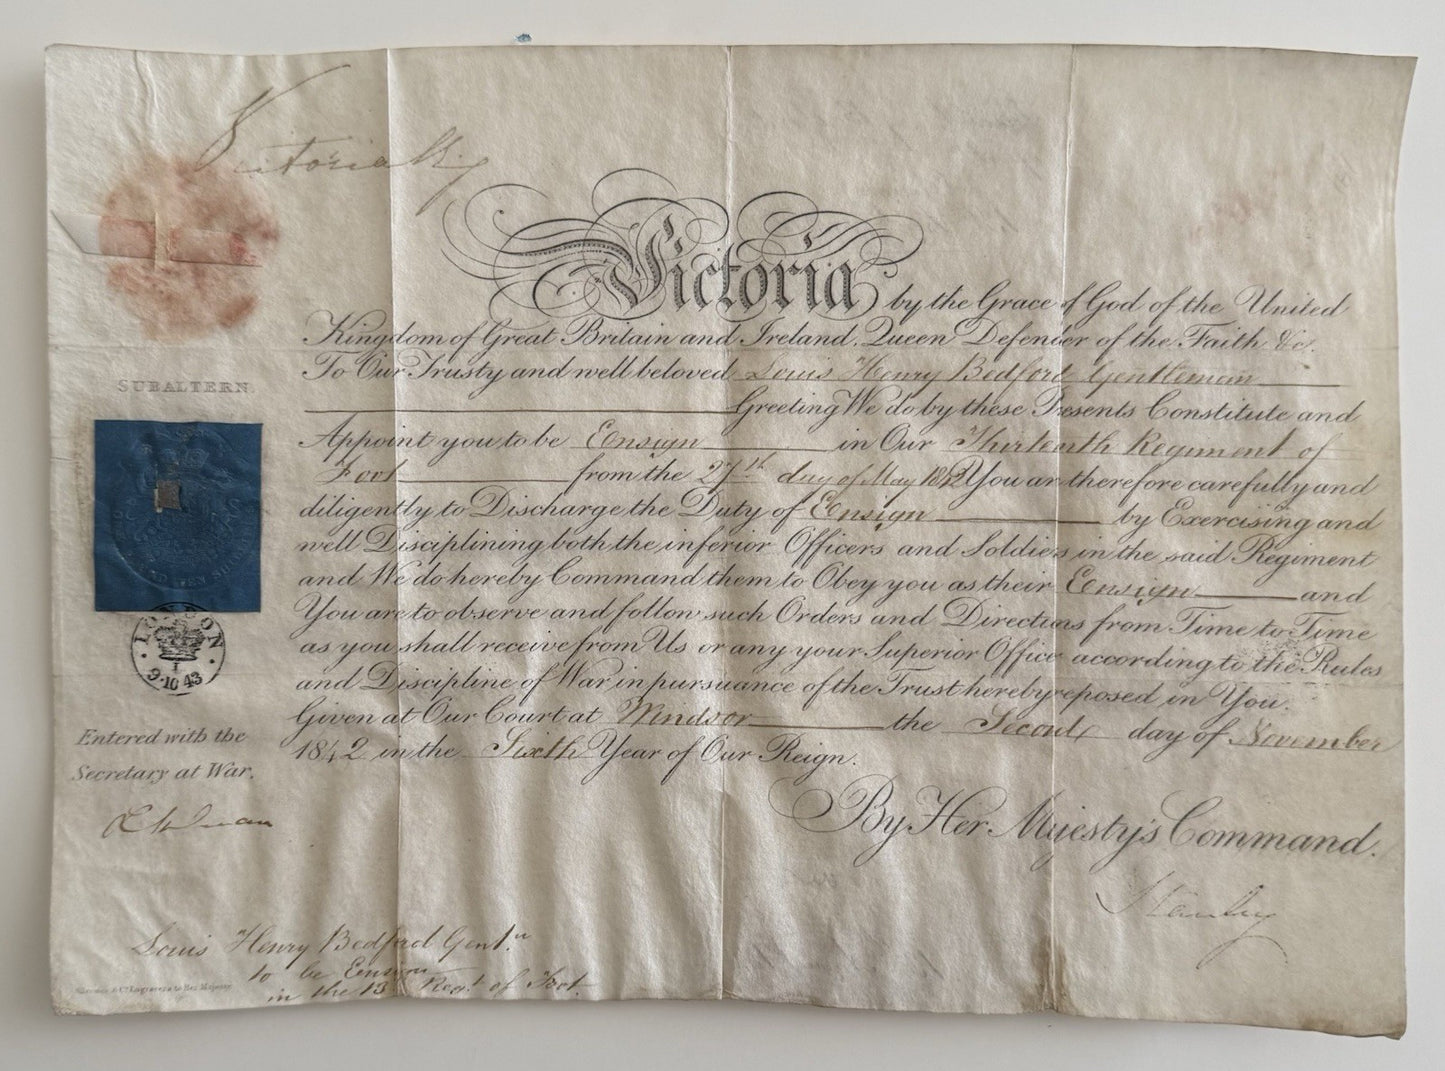 Victoria R
SUBALTERN.
LONDON
9·10 43
Entered with the
Secretary at War.
Victoria by the Grace of God of the United
Kingdom of Great Britain and Ireland, Queen Defender of the Faith &c.
To Our Trusty and well beloved Louis Henry Bedford Gentleman
Greeting We do by these Presents Constitute and
Appoint you to be Ensign in Our Thirteenth Regiment of
Foot from the 27th day of May 1842 You are therefore carefully and
diligently to Discharge the Duty of Ensign by Exercising and
well Disciplining both the inferior Officers and Soldiers in the said Regiment
and We do hereby Command them to Obey you as their Ensign and
You are to observe and follow such Orders and Directions from Time to Time
as you shall receive from Us or any your Superior Officer according to the Rules
and Discipline of War, in pursuance of the Trust hereby reposed in You.
Given at Our Court at Windsor the Second day of November
1842 in the Sixth Year of Our Reign.
By Her Majesty's Command.
Stanley
Louis Henry Bedford Gent.n
to be Ensign
in the 13 Regt. of Foot.
& Co. Engravers to Her Majesty